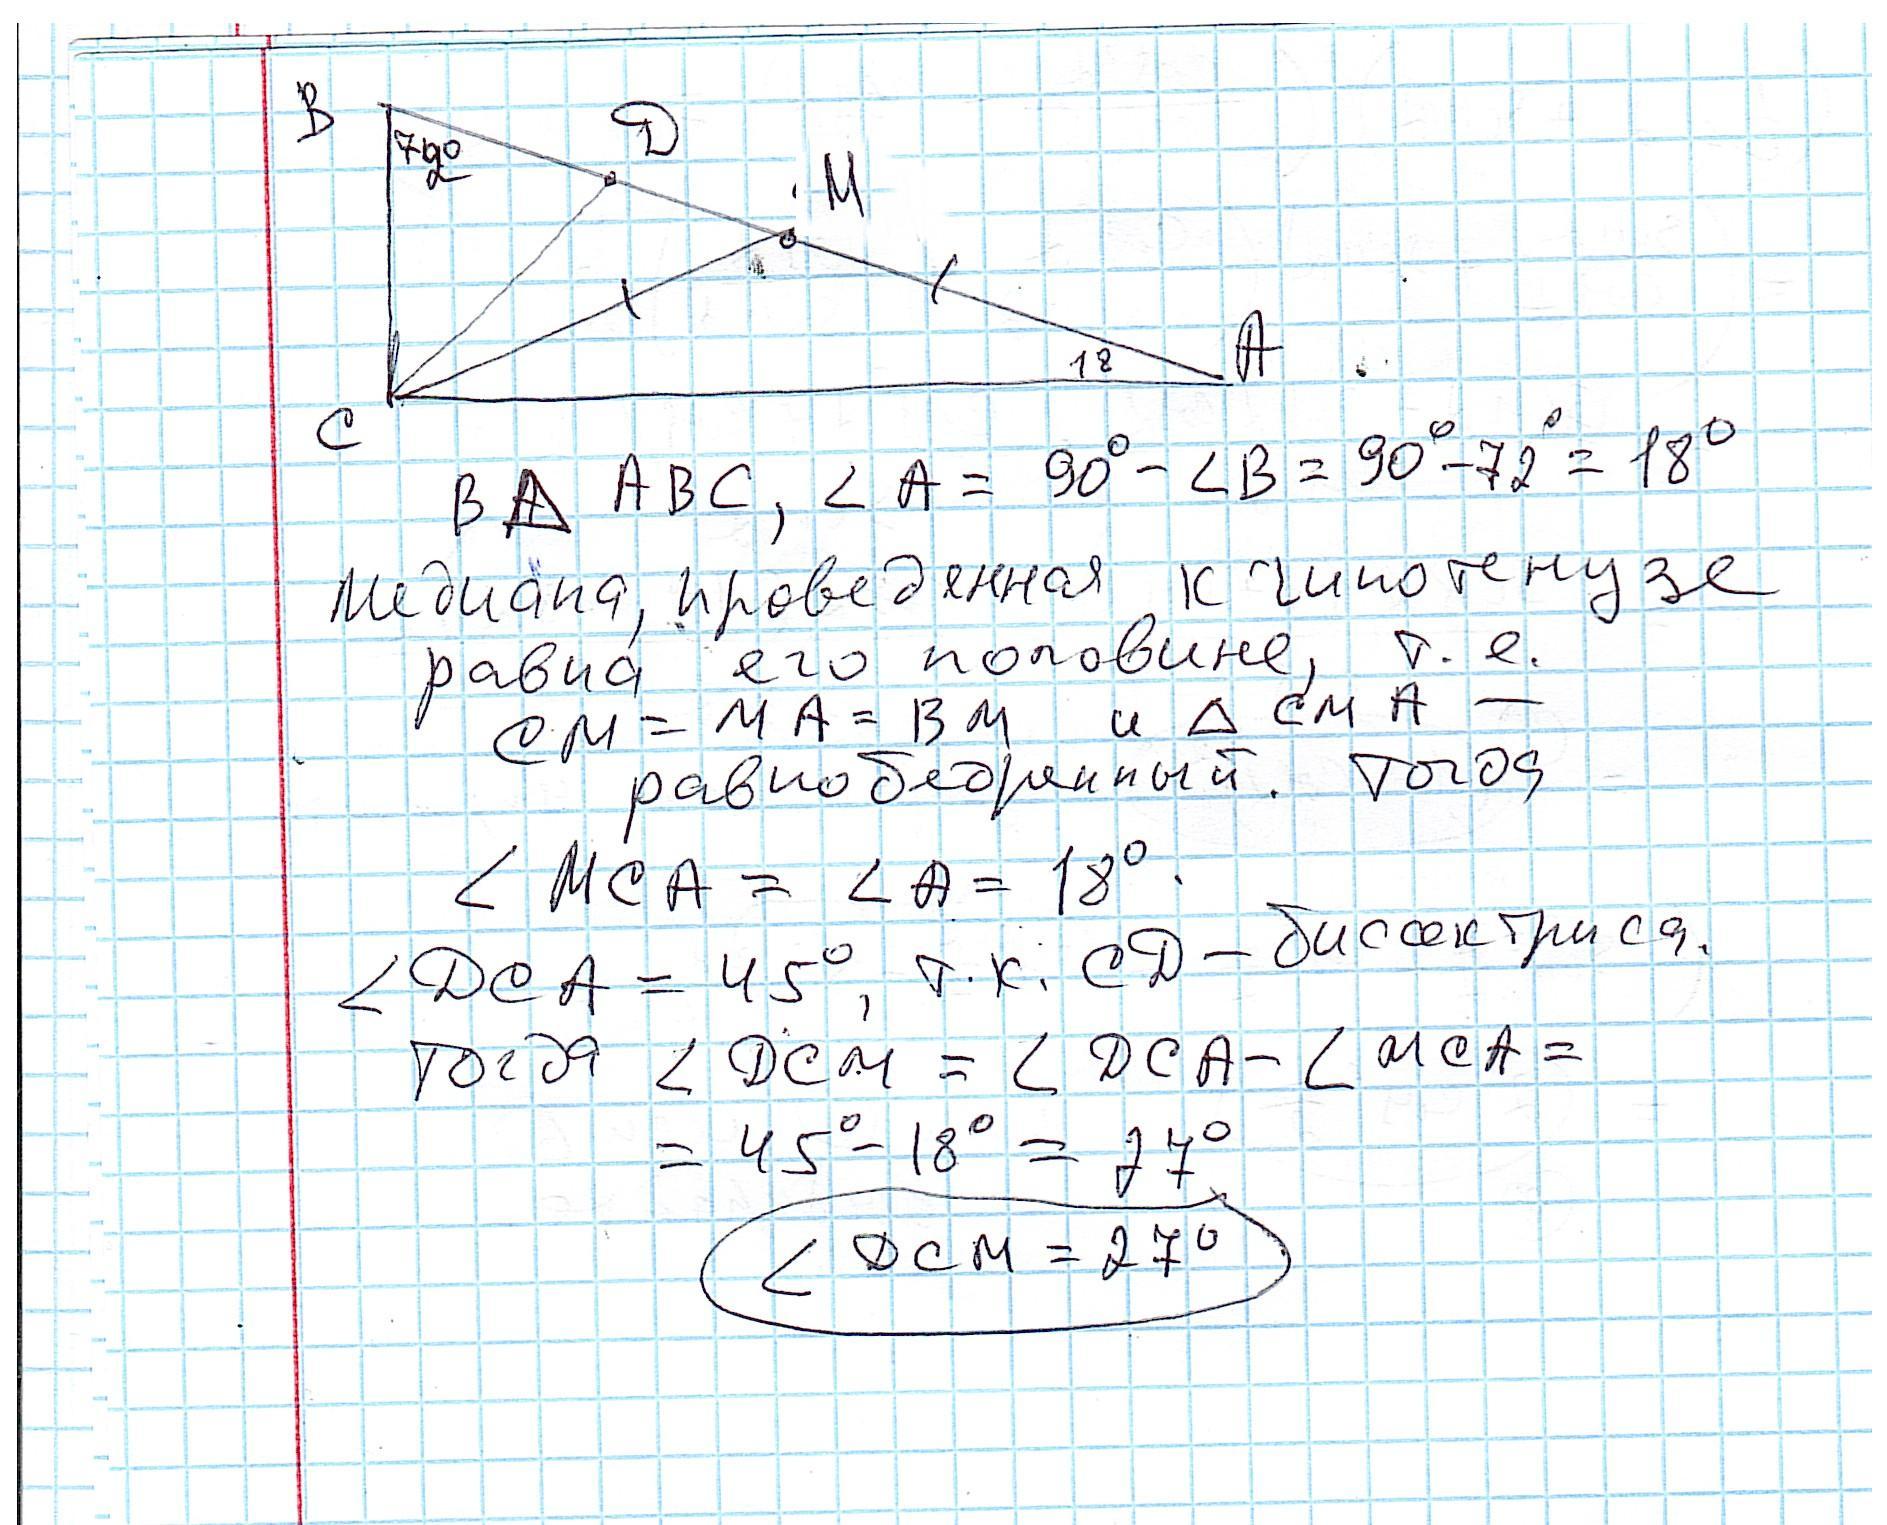 B
D
M
72°
18
A
C
В △ ABC, ∠A = 90° - ∠B = 90° - 72° = 18°
Медиана, проведенная к гипотенузе
равна его половине, т. е.
CM = MA = BM и △ CMA —
равнобедренный. Тогда
∠ MCA = ∠A = 18°.
∠DCA = 45°, т.к. CD – биссектриса.
Тогда ∠ DCM = ∠ DCA - ∠ MCA =
= 45° - 18° = 27°
∠ DCM = 27°